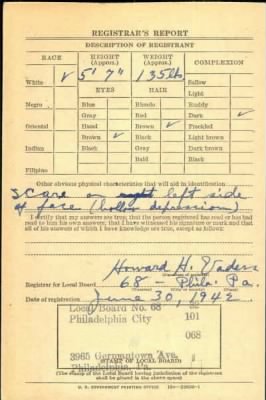 REGISTRAR'S REPORT
DESCRIPTION OF REGISTRANT
RACE HEIGHT (Approx.) WEIGHT (Approx.) COMPLEXION
White ✓ 5' 7" 135 lb. Sallow
EYES HAIR Light
Negro Blue Blonde Ruddy
Gray Red Dark ✓
Oriental Hazel Brown ✓ Freckled
Brown ✓ Black Light brown
Indian Black Gray Dark brown
Bald Black
Filipino
Other obvious physical characteristics that will aid in identification
Scar on right left side
of face (hollow depression)
I certify that my answers are true; that the person registered has read or has had
read to him his own answers; that I have witnessed his signature or mark and that
all of his answers of which I have knowledge are true, except as follows:
Howard H.
Registrar for Local Board 68 - Phila. Pa.
Date of registration June 30, 1942
Local Board No. 68
Philadelphia City 101
068
3965 Germantown Ave.
Philadelphia, Pa.
STAMP OF LOCAL BOARD
(The stamp of the Local Board having jurisdiction of the registrant
shall be placed in the above space)
U. S. GOVERNMENT PRINTING OFFICE